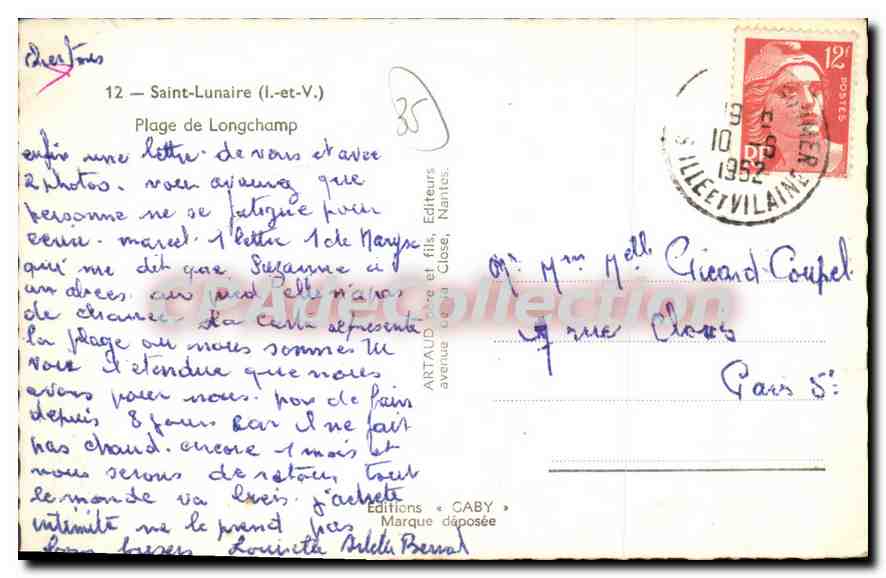 12 — Saint-Lunaire (I.-et-V.)
Plage de Longchamp
35
enfin une lettre. de vous et avec
2 photos. vous avouerez que
personne ne se fatigue pour
ecrire. marcel. 1 lettre 1 de Maryse
qui me dit que Suzanne a
un abces. au pied elle n'a pas
de chance. la carte represente
la plage ou nous sommes tu
vois l'etendue que nous
avons pour nous. pas de bain
depuis 8 jours car il ne fait
pas chaud. encore 1 mois et
nous serons de retour tout
le monde va bien. j'achete
intimité ne le prend pas
bons baisers Louisette
ARTAUD père et fils, Editeurs
avenue de la Close, Nantes.
Editions « GABY »
Marque déposée
12F
POSTES
RF
10 - 6
1952
ILLE ET VILAINE
Mr Mme Melle Picard-Coupel
7 rue Clovis
Paris 5e
CPADeCollection